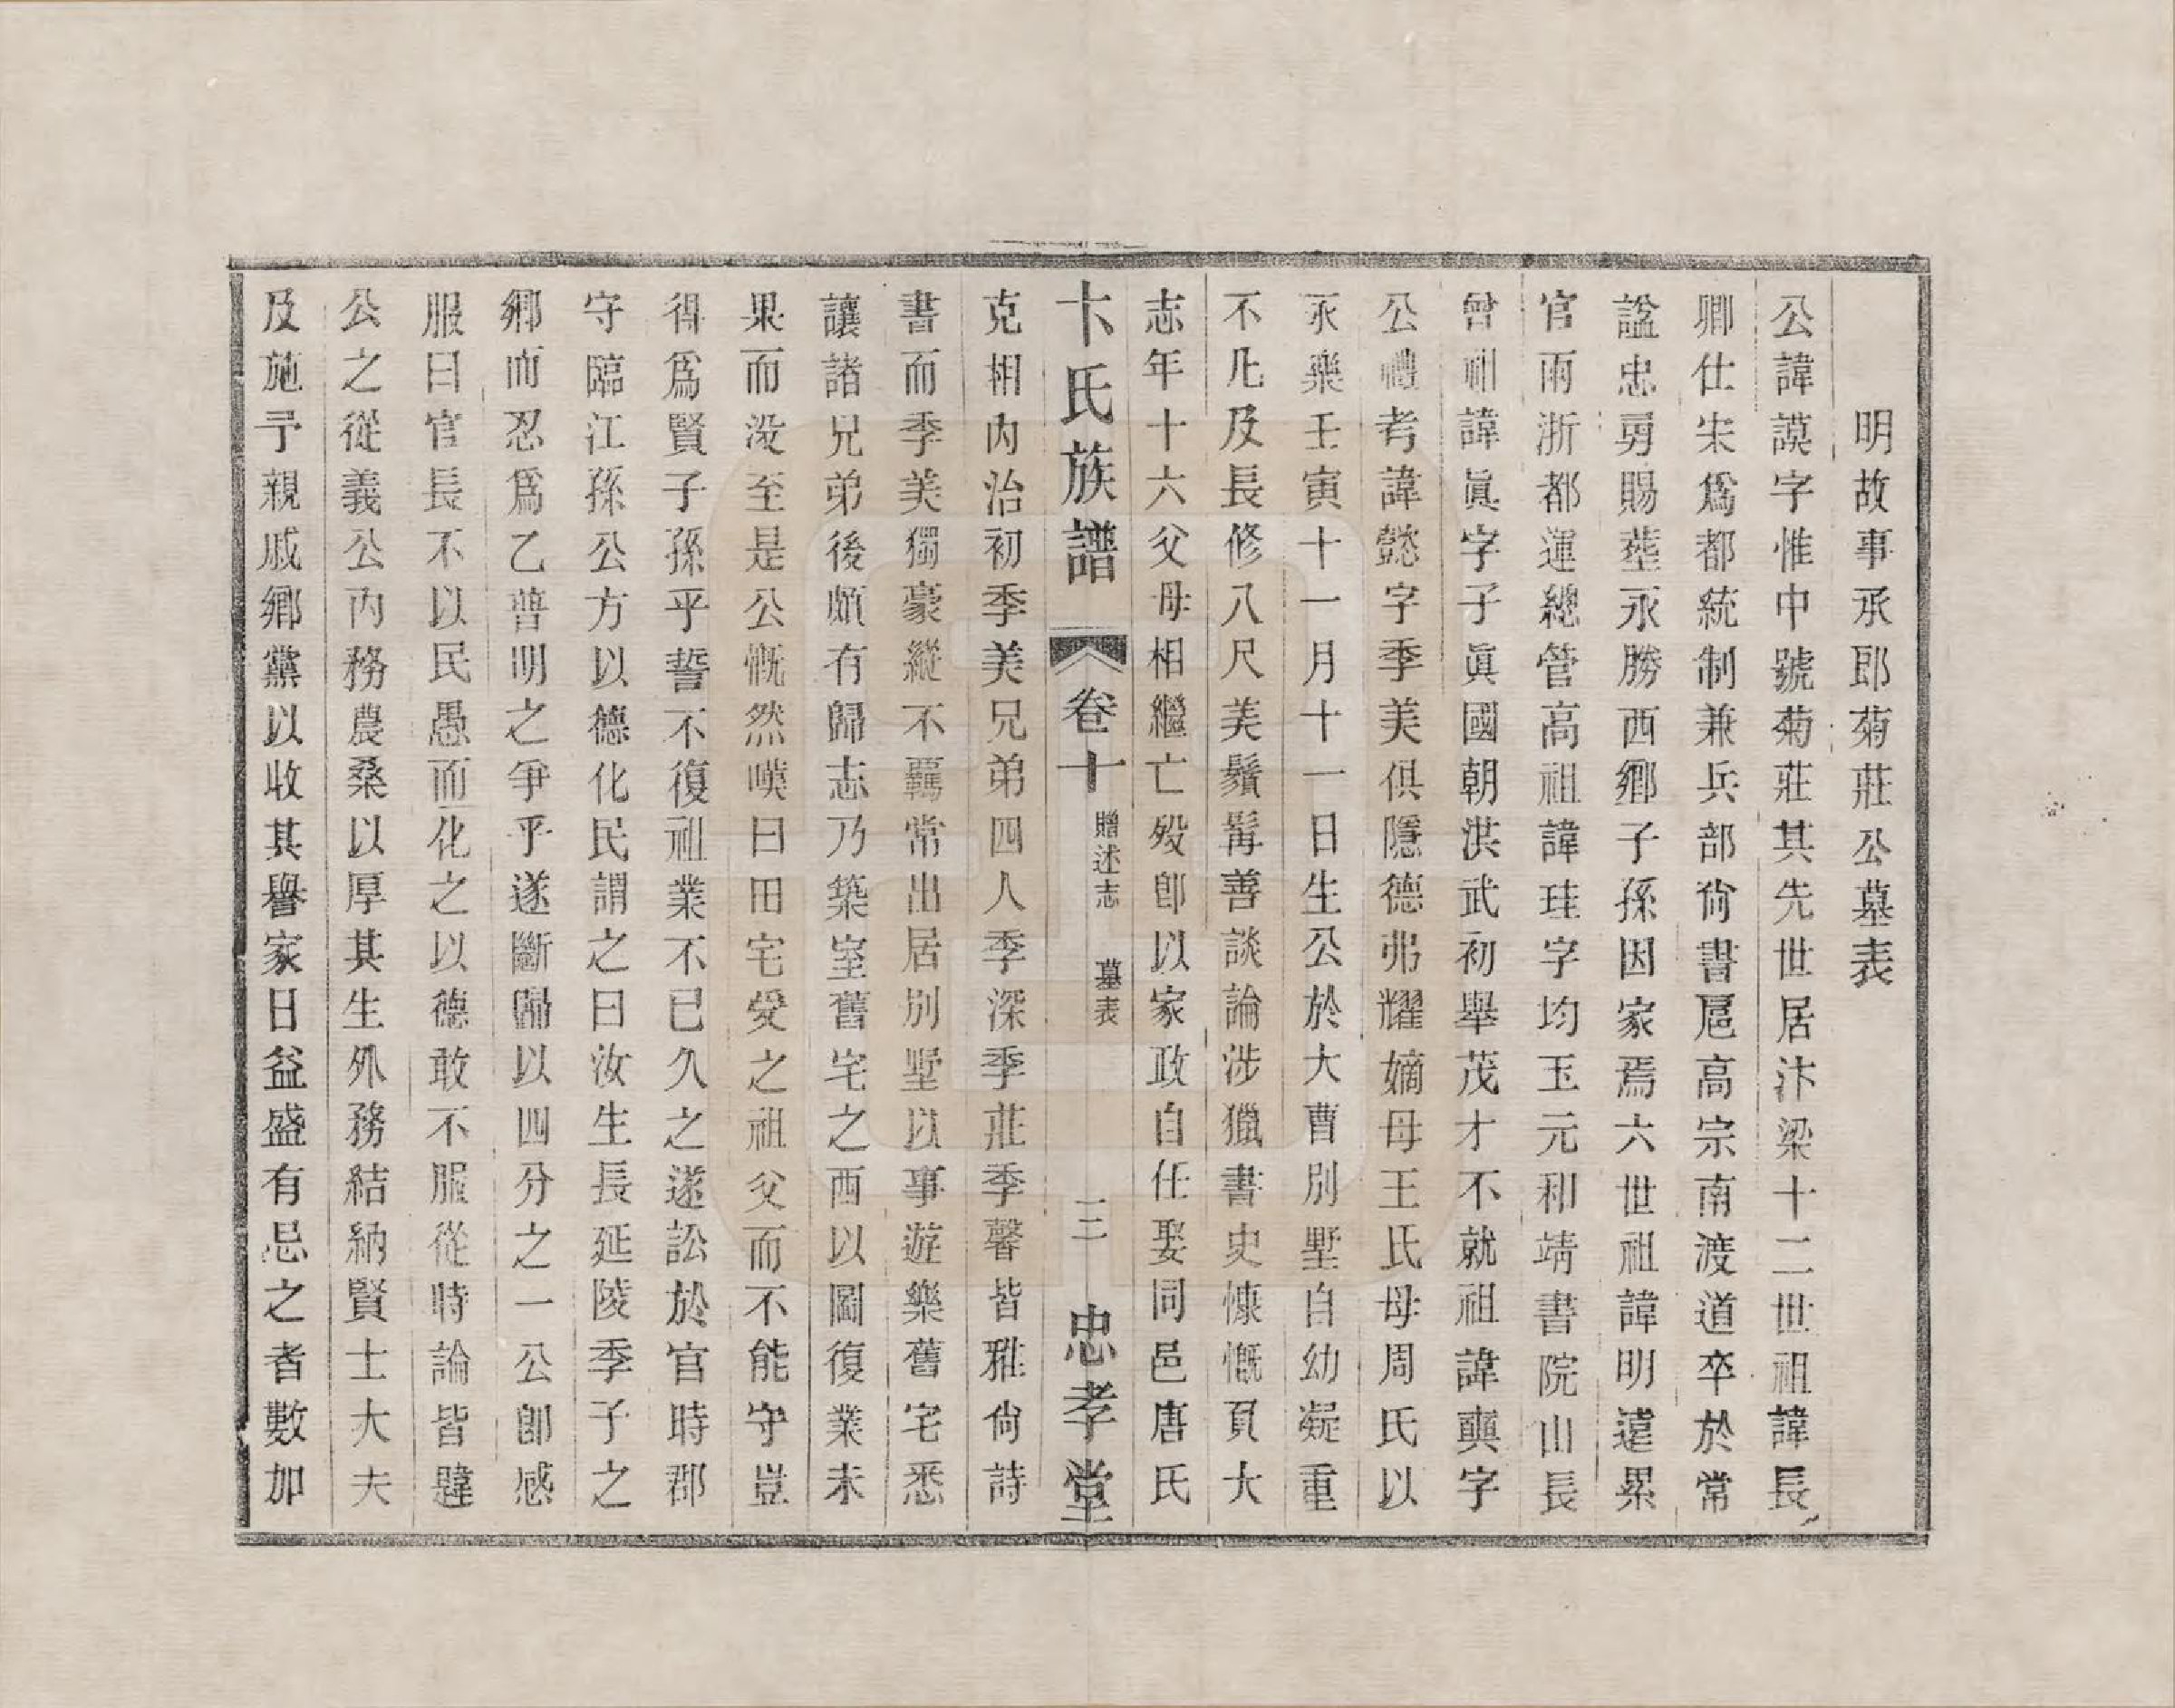 明故事承郎菊莊公墓表
公諱謨字惟中號菊莊其先世居汴梁十二世祖諱長
卿仕宋爲都統制兼兵部尙書扈高宗南渡道卒於常
諡忠勇賜塟永勝西鄉子孫因家焉六世祖諱明遠累
官兩浙都運總管高祖諱珪字均玉元和靖書院山長
曾祖諱眞字子眞國朝洪武初舉茂才不就祖諱輿字
公禮考諱懿字季美俱隱德弗耀嫡母王氏母周氏以
永樂壬寅十一月十一日生公於大曹別墅自幼凝重
不凡及長修八尺美鬚髯善談論涉獵書史慷慨負大
志年十六父母相繼亡歿卽以家政自任娶同邑唐氏
卞氏族譜 卷十 贈述志 墓表 三 忠孝堂
克相內治初季美兄弟四人季深季莊季馨皆雅尙詩
書而季美獨豪縱不羈常出居別墅以事遊樂舊宅悉
讓諸兄弟後頗有歸志乃築室舊宅之西以圖復業未
果而没至是公慨然嘆曰田宅受之祖父而不能守豈
得爲賢子孫乎誓不復祖業不已久之遂訟於官時郡
守臨江孫公方以德化民謂之曰汝生長延陵季子之
鄉而忍爲乙普明之爭乎遂斷歸以四分之一公卽感
服曰官長不以民愚而化之以德敢不服從時論皆韙
公之從義公內務農桑以厚其生外務結納賢士大夫
及施予親戚鄉黨以收其譽家日益盛有忌之者數加